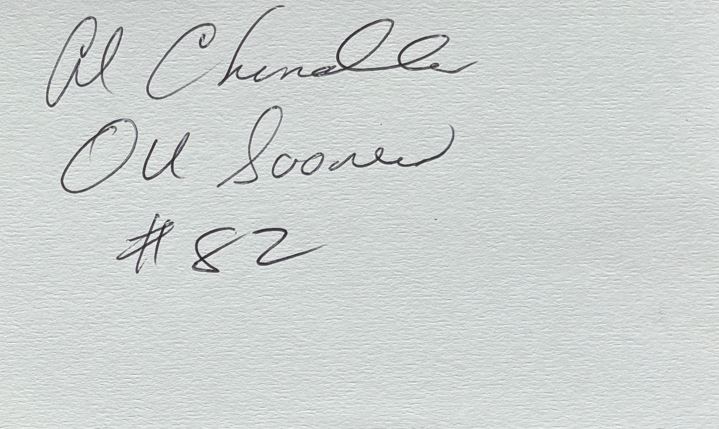 Al Chandler
OU Sooner
#82